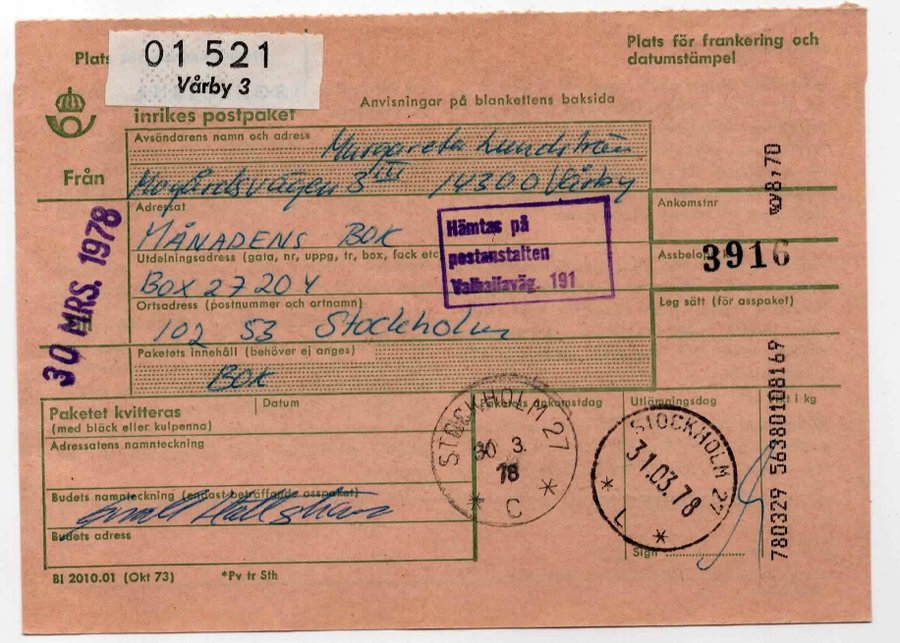 01 521
Vårby 3
Plats
Plats för frankering och
datumstämpel
Anvisningar på blankettens baksida
inrikes postpaket
Avsändarens namn och adress
Margareta Lundström
Från
3 III 143 00 Vårby
Adressat
MÅNADENS BOK
Utdelningsadress (gata, nr, uppg, tr, box, fack etc
BOX 27204
Ortsadress (postnummer och ortnamn)
102 53 Stockholm
Paketets innehåll (behöver ej anges)
BOK
30 MRS. 1978
Hämtas på
postanstalten
Valhallaväg. 191
Ankomstnr
8,70
Assbelo
3916
Leg sätt (för asspaket)
Paketet kvitteras
(med bläck eller kulpenna)
Datum
Paketets ankomstdag
Utlämningsdag
t i kg
Adressatens namnteckning
Budets namnteckning (endast beträffande asspaket)
Budets adress
STOCKHOLM 27
30 3.
78
* C *
STOCKHOLM 27
31.03.78
* L *
780329 563801108169
Sign
BI 2010.01 (Okt 73)
*Pv tr Sth